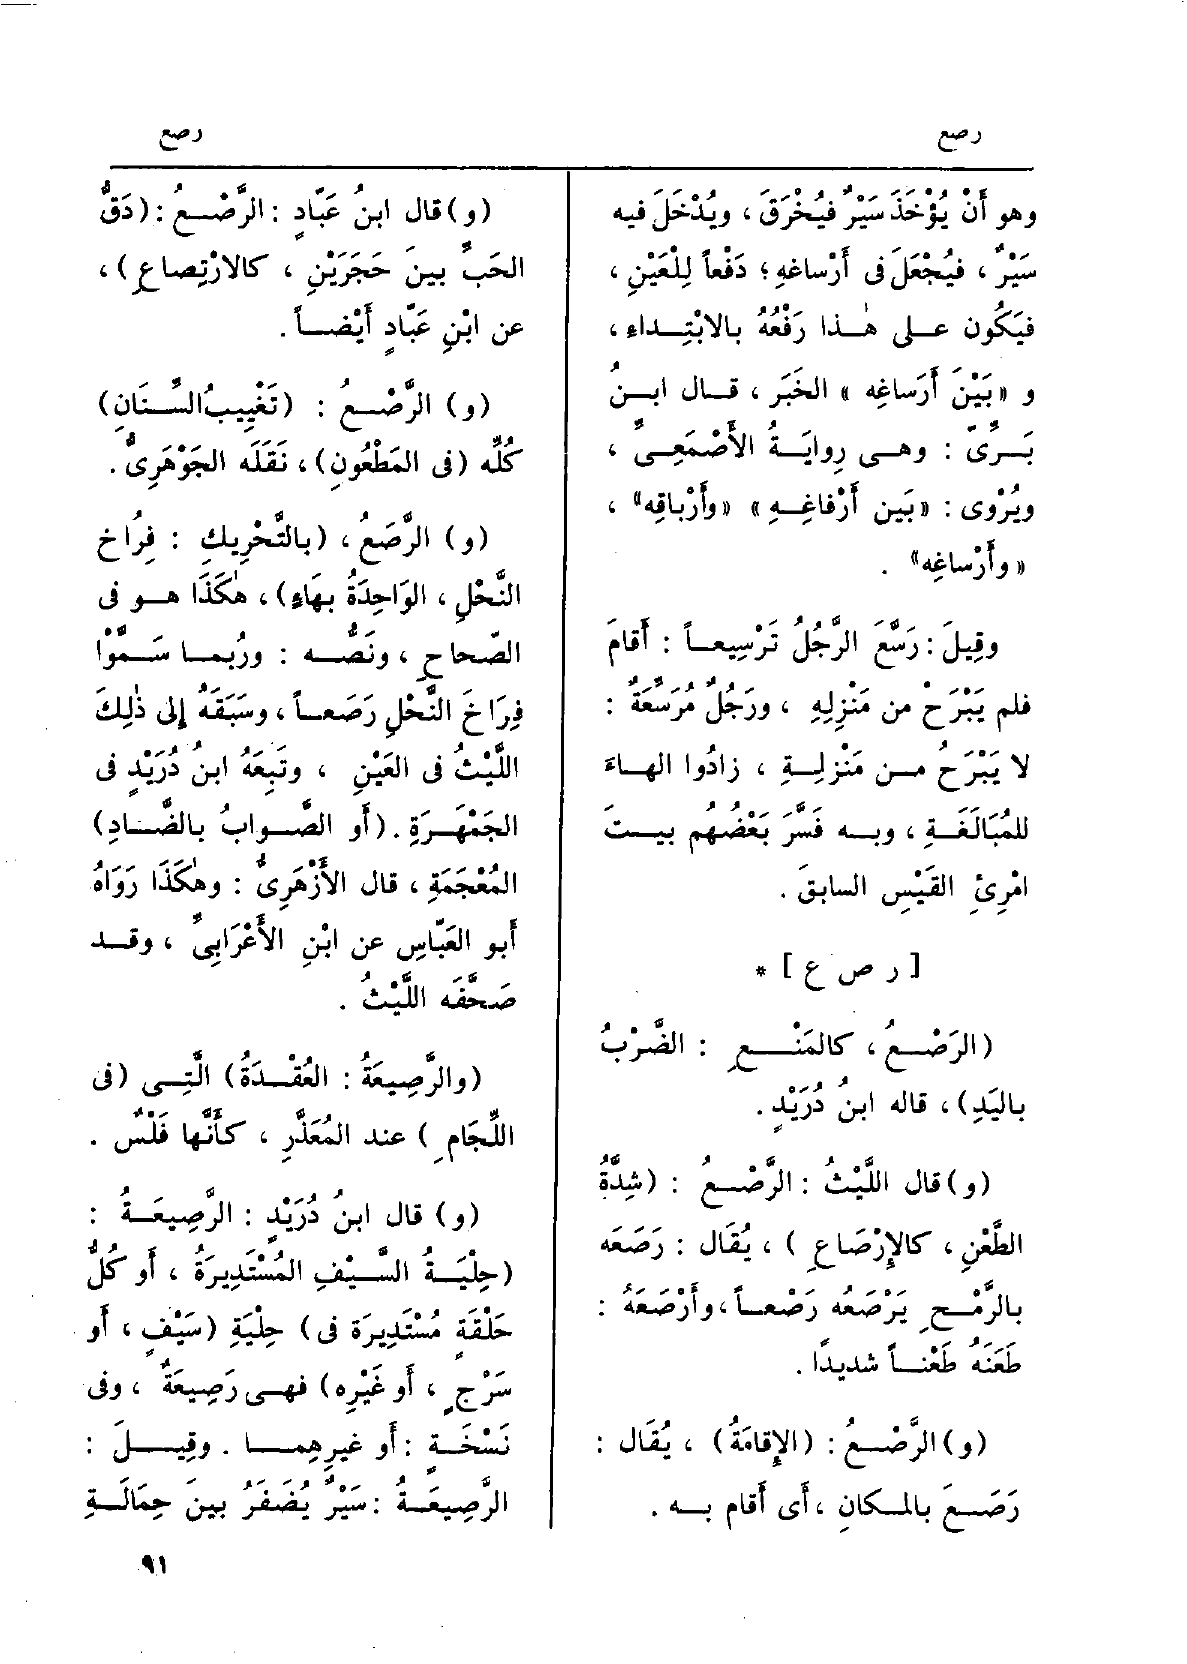 رصع
رصع
وهو أَنْ يُؤْخَذَ سَيْرٌ فيُخْرَقَ ، ويُدْخَلَ فيه
سَيْرٌ ، فيُجْعَلَ فى أَرْساغهِ ؛ دَفْعاً لِلْعَيْنِ ،
فيَكُون على هٰذا رَفْعُهُ بالابْتِداءِ ،
و «بَيْنَ أَرساغِه » الخَبَر ، قال ابنُ
بَرِّىّ : وهى رِوايَةُ الأَصْمَعِىِّ ،
ويُرْوى : «بَين أَرْفاغِهِ» «وأَرْباقِه» ،
«وأَرْساغِه» .
وقِيلَ : رَسَّعَ الرَّجُلُ تَرْسِيعاً : أَقامَ
فلم يَبْرَحْ من مَنْزِلِهِ ، ورَجُلٌ مُرَسَّعَةٌ :
لا يَبْرَحُ من مَنْزِلِةِ ، زادُوا الهاءَ
للمُبَالَغَةِ ، وبه فَسَّرَ بَعْضُهم بيتَ
امْرِئِ القَيْسِ السابقَ .
[ ر ص ع ] *
(الرَصْعُ ، كالمَنْعِ : الضَّرْبُ
باليَدِ) ، قاله ابنُ دُرَيْدٍ .
(و) قال اللَّيْثُ : الرَّصْعُ : (شِدَّةُ
الطَّعْنِ ، كالإِرْصَاعِ ) ، يُقَال : رَصَعَه
بالرُّمْحِ يَرْصَعُه رَصْعاً ، وأَرْصَعَهُ :
طَعَنَهُ طَعْناً شديدًا .
(و) الرَّصْعُ : (الإِقامَةُ) ، يُقَال :
رَصَعَ بالمكانِ ، أَى أَقام به .
(و) قال ابنُ عَبّادٍ : الرَّصْعُ : (دَقُّ
الحَبِّ بينَ حَجَرَيْنِ ، كالارْتِصاعِ ) ،
عن ابْنِ عَبّادٍ أَيْضاً .
(و) الرَّصْعُ : (تَغْيِيبُ السِّنَانِ)
كُلِّه (فى المَطْعُونِ) ، نَقَلَه الجَوْهَرِىُّ .
(و) الرَّصَعُ ، (بالتَّحْرِيكِ : فِرُاخ
النَّحْلِ ، الوَاحِدَةُ بهَاءٍ) ، هٰكَذَا هو فى
الصّحاحِ ، ونَصُّه : ورُبما سَمَّوْا
فِرَاخَ النَّحْلِ رَصَعاً ، وسَبَقَهُ إلى ذٰلِكَ
اللَّيْثُ فى العَيْنِ ، وتَبِعَهُ ابنُ دُرَيْدٍ فى
الجَمْهَرَةِ . (أو الصَّوابُ بالضَّادِ)
المُعْجَمَةِ ، قال الأَزْهَرِىُّ : وهٰكَذَا رَوَاهُ
أبو العَبّاسِ عن ابْنِ الأَعْرَابِىِّ ، وقد
صَحَّفَه اللَّيْثُ .
(والرَّصِيعَةُ : العُقْدَةُ) الَّتِى (فى
اللِّجَامِ ) عند المُعَذَّرِ ، كأَنَّها فَلْسٌ .
(و) قال ابنُ دُرَيْدٍ : الرَّصِيعَةُ :
(حِلْيَةُ السَّيْفِ المُسْتَدِيرَةُ ، أو كُلُّ
حَلْقَةٍ مُسْتَدِيرَة فى) حِلْيَةِ (سَيْفٍ ، أو
سَرْجٍ ، أو غَيْرِه) فهى رَصِيعَةٌ ، وفى
نَسْخَةٍ : أَو غيرِهِما . وقِيلَ :
الرَّصِيعَةُ : سَيْرٌ يُضْفَرُ بينَ حِمَالَةِ
٩١